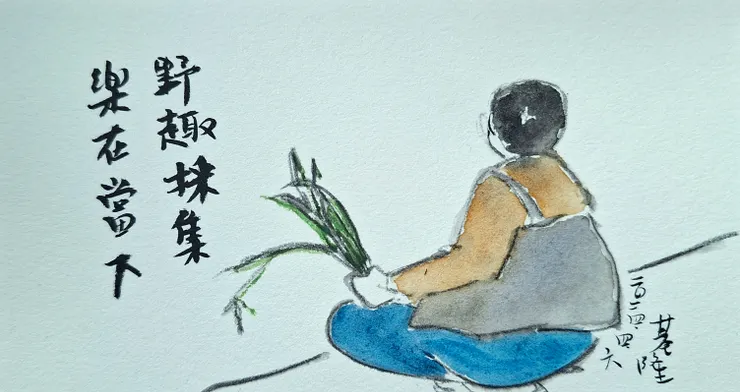 野趣採集
樂在當下
基隆
二〇二四.四.六